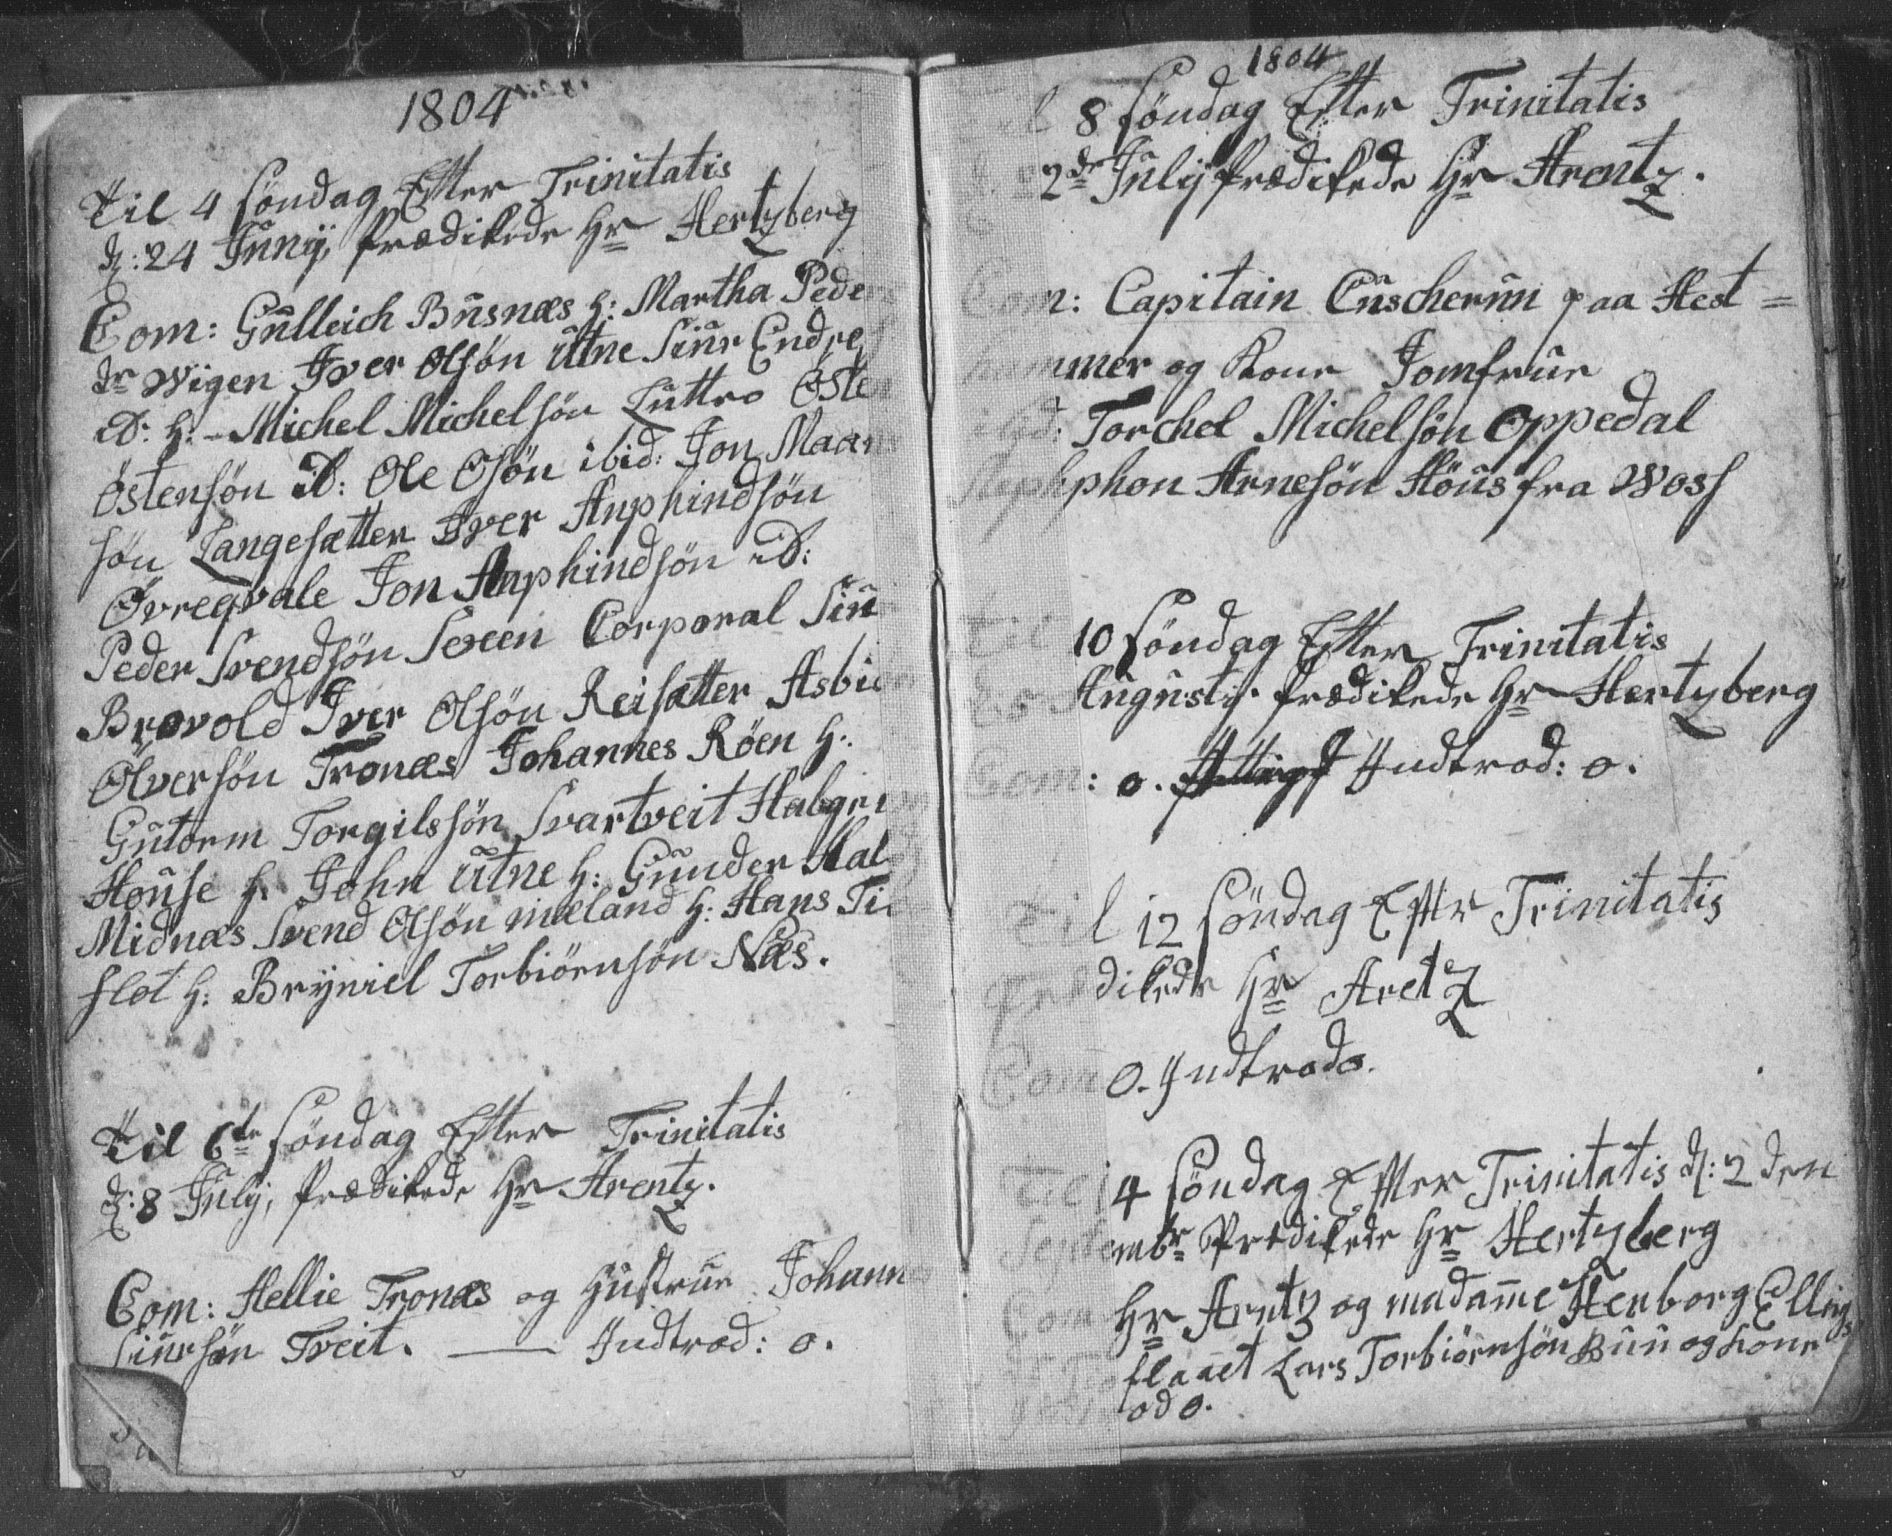 1804
Til 4 Søndag Efter Trinitatis
d: 24 Junij, Prædikede Hr Hertzberg
Com: Gülleich Büsnæs h: Martha Peders
dr Wigen Iver Olsøn ütne Siür Endres
D: h: Michel Michelsøn Lüttro Østen
Østensøn D: Ole Olsøn ibid: Jon Maans
søn Langesætter Iver Anphindsøn
Øvreqvale Jon Anphindsøn D:
Peder Svendsøn Sexeen Corporal Siür
Bravold Iver Olsøn Reisætter Asbiørn
Ølversøn Tronæs Johannes Röen h:
Gütorm Torgilssøn Svartveit Halgrim
Hoüse h. John ütne h: Gunder Hal
Midnæs Svend Olsøn mæland h: Hans Ti
flot h: Bryniel Torbiörnsön Næs.
Til 6te Søndag Efter Trinitatis
d: 8 Julij, Prædikede Hr Arentz.
Com: Hellie Tronæs og Hüstrüe Johannes
Siürsøn Treit. — Indtrod: o.
1804
Til 8 Søndag Efter Trinitatis
2de Julij Prædikede Hr Arentz.
Com: Capitain Cüscherün paa Hest =
hammer og Kone Jomfrüe
Torchel Michelsøn Oppedal
Arnesøn Höüs fra Woss
Til 10 Søndag Efter Trinitatis
Augusti Prædikede Hr Hertzberg
Com: o. Indtrod: o.
Til 12 Søndag Efter Trinitatis
Prædikede Hr Aretz
Com O. Indtrodo.
Til 14 Søndag Efter Trinitatis d: 2 den
Septembr Prædikede Hr Hertzberg
Com Hr Arntz og madame Herborg Ellings
flaaet Lars Torbiörnsön Büü og kone
od o.